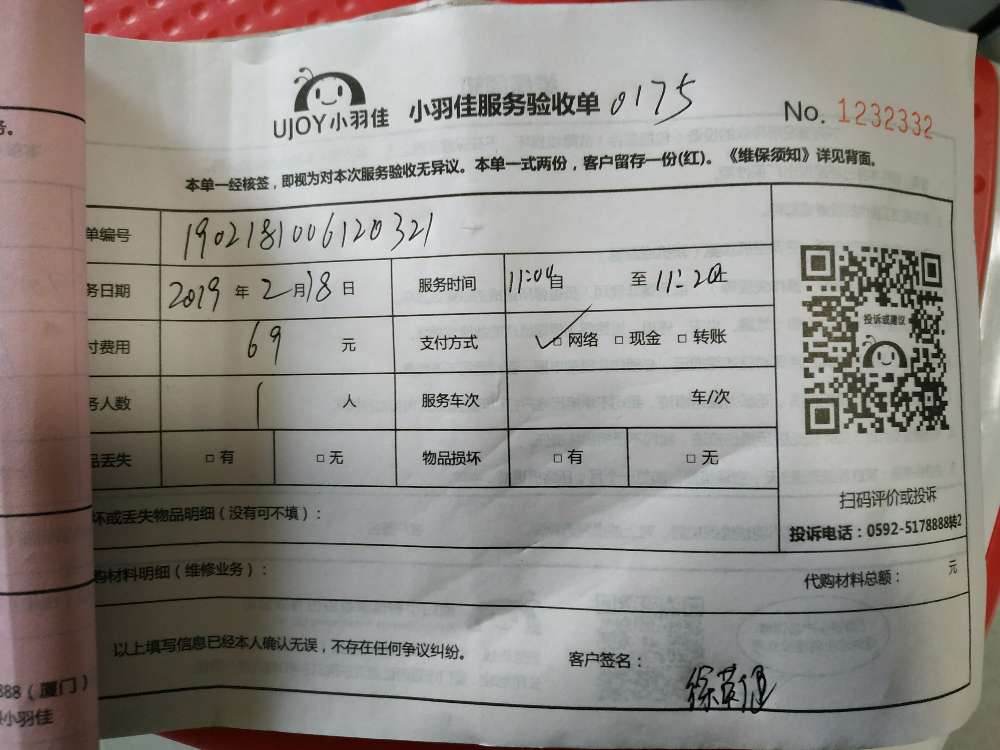 务。
UJOY小羽佳 小羽佳服务验收单 0175 No. 1232332
本单一经核签，即视为对本次服务验收无异议。本单一式两份，客户留存一份(红)。《维保须知》详见背面。
单编号 1902181006120321
务日期 2019 年 2 月 18 日 服务时间 11:04 自 至 11:20 止
付费用 69 元 支付方式 ✓□ 网络 □ 现金 □ 转账
务人数 1 人 服务车次 车/次
品丢失 □ 有 □ 无 物品损坏 □ 有 □ 无
投诉或建议
扫码评价或投诉
投诉电话：0592-5178888转2
坏或丢失物品明细（没有可不填）：
购材料明细（维修业务）： 代购材料总额： 元
以上填写信息已经本人确认无误，不存在任何争议纠纷。
客户签名：
888（厦门）
小羽佳